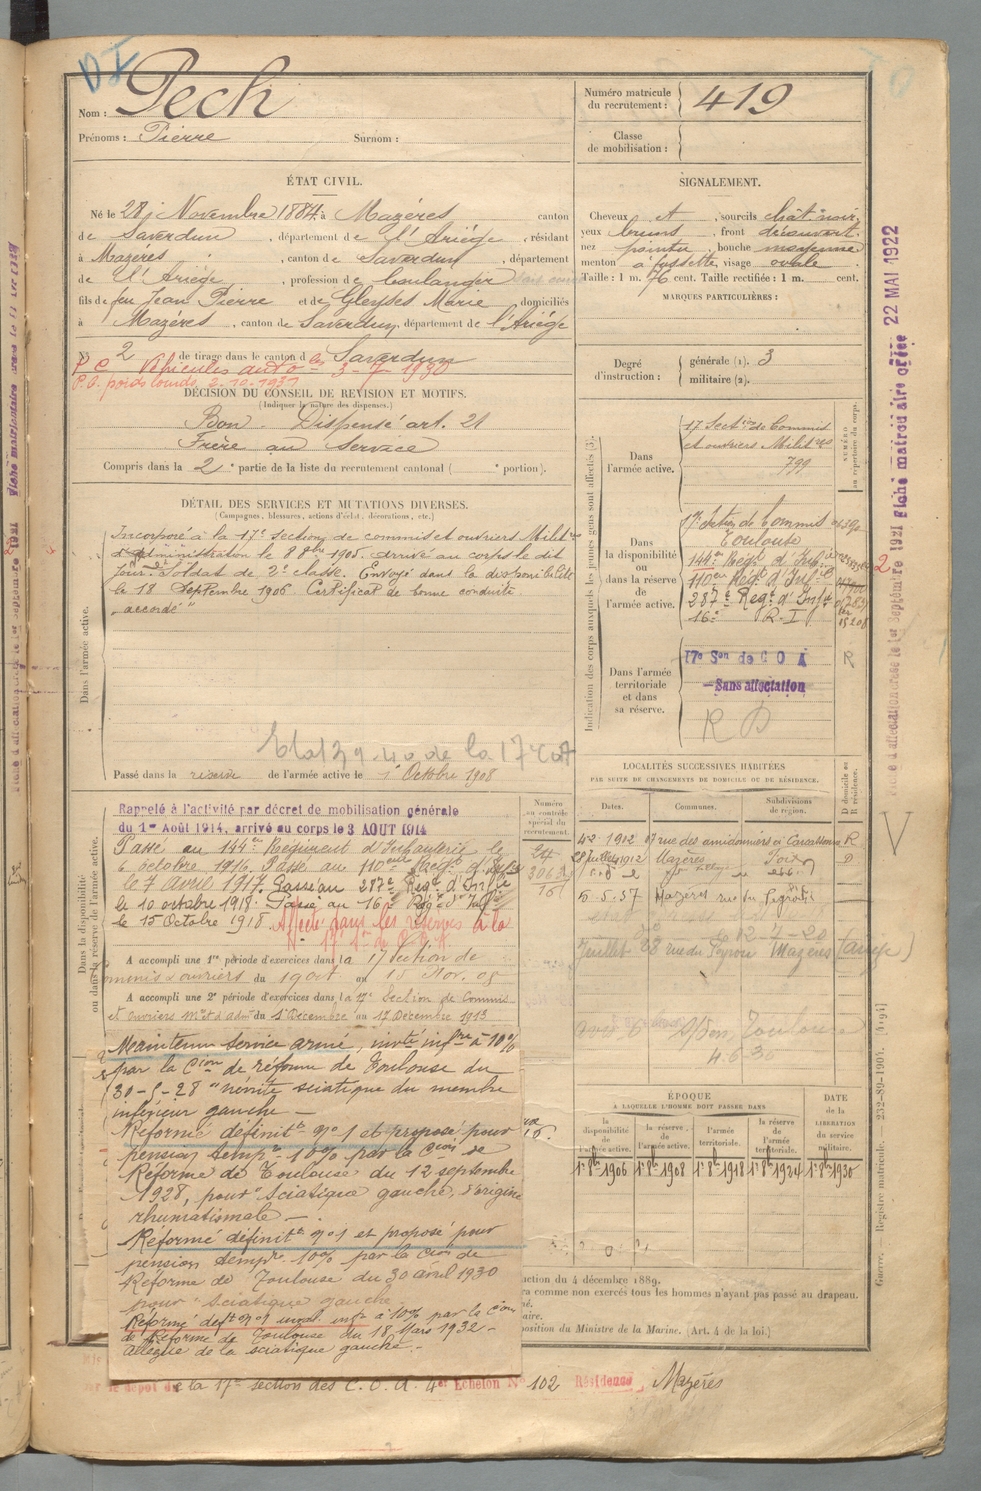 Nom : Pech
Prénoms : Pierre Surnom :
Numéro matricule du recrutement : 419
Classe de mobilisation :
ÉTAT CIVIL.
Né le 28 Novembre 1884 à Mazéres canton
de Saverdun, département de l'Ariége, résidant
à Mazéres, canton de Saverdun, département
de l'Ariége, profession de boulanger
fils de feu Jean Pierre et de Gleyses Marie domiciliés
à Mazéres, canton de Saverdun, département de l'Ariége
N° 2 de tirage dans le canton de Saverdun
P C Véhicules auto 3-7-1930
P.C. poids lourds 2-10-1931
DÉCISION DU CONSEIL DE RÉVISION ET MOTIFS.
(Indiquer la nature des dispenses.)
Bon - Dispensé art. 21
Frère au service
Compris dans la 2e partie de la liste du recrutement cantonal ( e portion).
SIGNALEMENT.
Cheveux et, sourcils chât. noir,
yeux bruns, front découvert
nez pointu, bouche moyenne
menton à fossette, visage ovale
Taille : 1 m. 76 cent. Taille rectifiée : 1 m. cent.
MARQUES PARTICULIÈRES :
Degré d'instruction : générale (1). 3
militaire (2).
DÉTAIL DES SERVICES ET MUTATIONS DIVERSES.
(Campagnes, blessures, actions d'éclat, décorations, etc.)
Dans l'armée active.
Incorporé à la 17e section de commis et ouvriers Milit res
d'administration le 8 8bre 1905. arrivé au corps le dit
jour. Soldat de 2e classe. Envoyé dans la disponibilité
le 18 Septembre 1906. Certificat de bonne conduite
"accordé"
Passé dans la réserve de l'armée active le 1 Octobre 1908
Indication des corps auxquels les jeunes gens sont affectés (3).
NUMÉRO au répertoire du corps.
Dans l'armée active.
17 Sect on de Commis
et ouvriers Milit res
799
Dans la disponibilité ou dans la réserve de l'armée active.
17e Section de Commis
Toulouse
144e Régt d'Inf ie
110e Régt d'Inf ie
287e Régt d'Inf ie
16e R.I
Dans l'armée territoriale et dans sa réserve.
17e Son de C O A
Sans affectation
R
R D
Dans la disponibilité ou dans la réserve de l'armée active.
Rappelé à l'activité par décret de mobilisation générale
du 1er Août 1914, arrivé au corps le 3 AOUT 1914
Passé au 144e Régiment d'Infanterie le
6 octobre 1916. Passé au 110eme Régt d'Inf ie
le 7 Avril 1917. Passé au 287e Régt d'Inf ie
le 10 octobre 1918. Passé au 16e Régt d'Inf ie
le 15 Octobre 1918. Affecté dans les réserves à la
17e Son de C O A
A accompli une 1re période d'exercices dans la 17 Section de
Commis et ouvriers du 19 oct au 15 Nov. 08
A accompli une 2e période d'exercices dans la 17e Section de Commis
et Ouvriers Mres d'adon du 1 Décembre au 17 Décembre 1913
Numéro au contrôle spécial du recrutement.
LOCALITÉS SUCCESSIVES HABITÉES
PAR SUITE DE CHANGEMENTS DE DOMICILE OU DE RÉSIDENCE.
Dates. Communes. Subdivisions de région. D domicile ou R résidence.
4-2-1912 rue des amidonniers Carcassonne R
28 Juillet 1912 Mazéres Foix D
5.5.37 Mazéres rue du
Juillet 28 rue du Peyrou Mazéres (Ariège)
Toulouse
4.6.30
Maintenu service armé, invté infre à 10%
par la Cion de réforme de Toulouse du
30-5-28 "névrite sciatique du membre
inférieur gauche -
Réformé définitt n°1 et proposé pour
pension tempre 10% par la Cion de
Réforme de Toulouse du 12 septembre
1928, pour "Sciatique gauche, d'origine
rhumatismale -
Réformé définitt n°1 et proposé pour
pension tempre 10% par la Cion de
Réforme de Toulouse du 30 avril 1930
pour "sciatique gauche
Réformé deft n°1 inval. infre à 10% par la Cion
de Réforme de Toulouse du 18 Mars 1932 -
allègue de la sciatique gauche -
ÉPOQUE
A LAQUELLE L'HOMME DOIT PASSER DANS
la disponibilité de l'armée active. la réserve de l'armée active. l'armée territoriale. la réserve de l'armée territoriale. DATE de la LIBÉRATION du service militaire.
1er 8bre 1906 1er 8bre 1908 1er 8bre 1918 1er 8bre 1924 1er 8bre 1930
ction du 4 décembre 1889.
ra comme non exercés tous les hommes n'ayant pas passé au drapeau.
né.
aire.
position du Ministre de la Marine. (Art. 4 de la loi.)
dépôt de la 17e section des C. O. A. 4er Echelon N° 102 Résidence Mazéres
Guerre. Registre matricule. 232-89-1904. [4194]
Fiche d'affectation créée le 1er Septembre 1921 Fiche matriculaire créée 22 MAI 1922